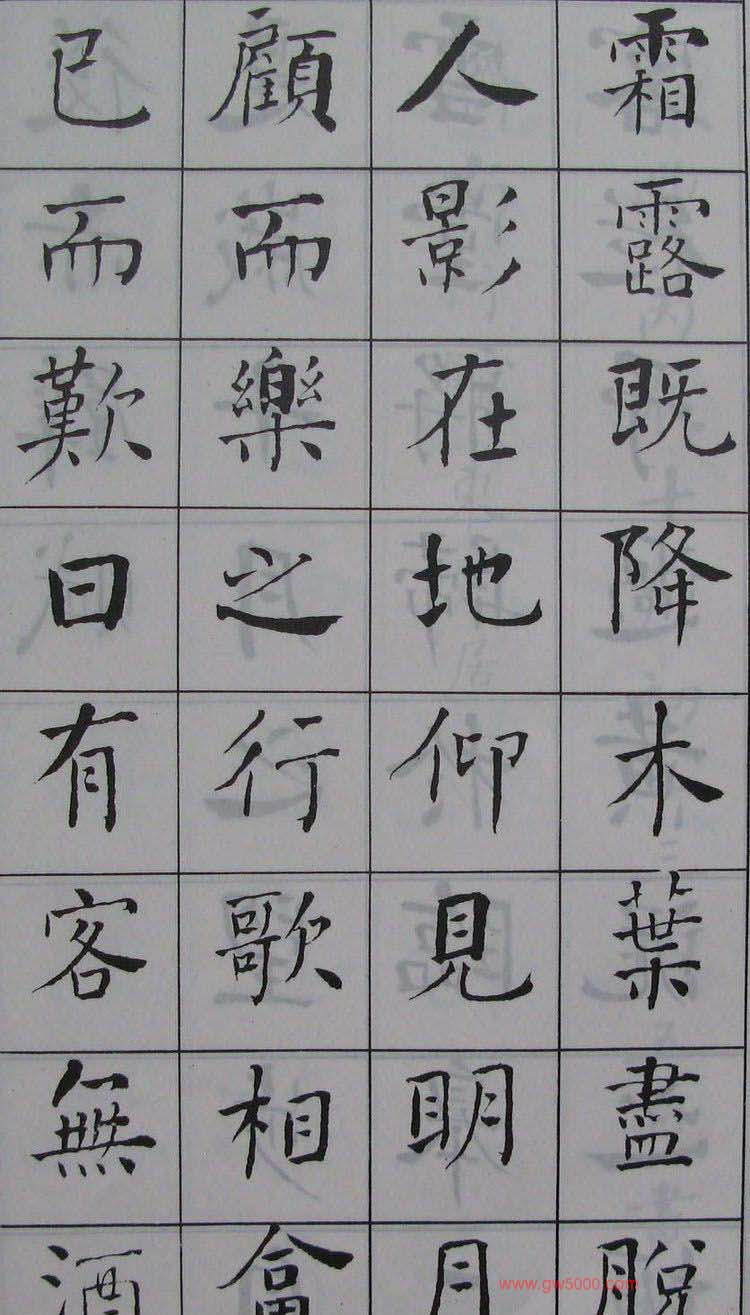 霜露既降木葉盡脱
人影在地仰見明月
顧而樂之行歌相畣
已而歎曰有客無酒
www.gw5000.com